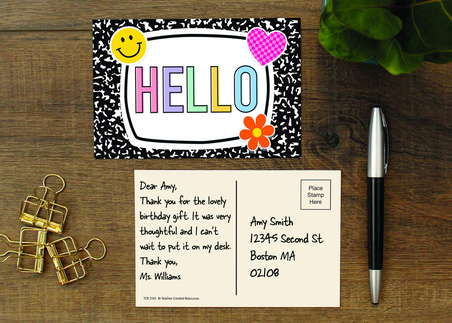 HELLO
Dear Amy,
Thank you for the lovely
birthday gift. It was very
thoughtful and I can't
wait to put it on my desk.
Thank you,
Ms. Williams
Place
Stamp
Here
Amy Smith
12345 Second St
Boston MA
02108
© Teacher Created Resources